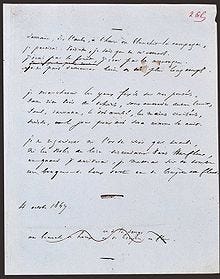 Demain, dès l'aube, à l'heure où blanchit la campagne,
je partirai. Vois-tu, je sais que tu m'attends.
j'irai par la forêt, j'irai par la montagne.
je ne puis demeurer loin de toi plus longtemps.
je marcherai les yeux fixés sur mes pensées,
sans rien voir au dehors, sans entendre aucun bruit,
seul, inconnu, le dos courbé, les mains croisées,
triste, et le jour pour moi sera comme la nuit.
je ne regarderai ni l'or du soir qui tombe,
ni les voiles au loin descendant vers Harfleur,
et quand j'arriverai, je mettrai sur ta tombe
un bouquet de houx vert et de bruyère en fleur.
4 octobre 1847